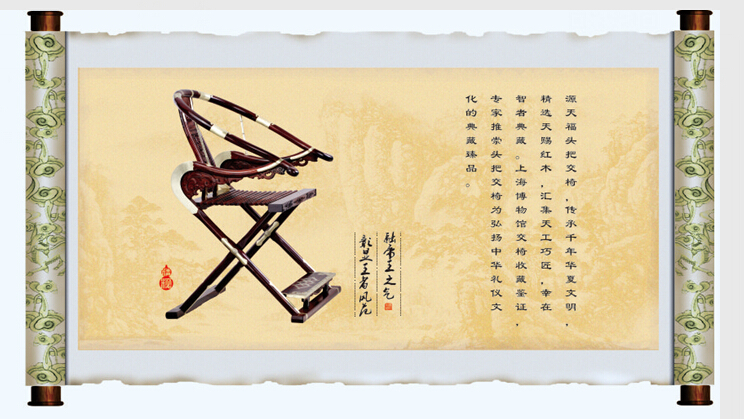 源天福头把交椅，传承千年华夏文明，
精选天赐红木，汇集天工巧匠，幸在
智者典藏。上海博物馆交椅收藏鉴证，
专家推崇头把交椅为弘扬中华礼仪文
化的典藏臻品。
融帝王之气
彰显王者风范